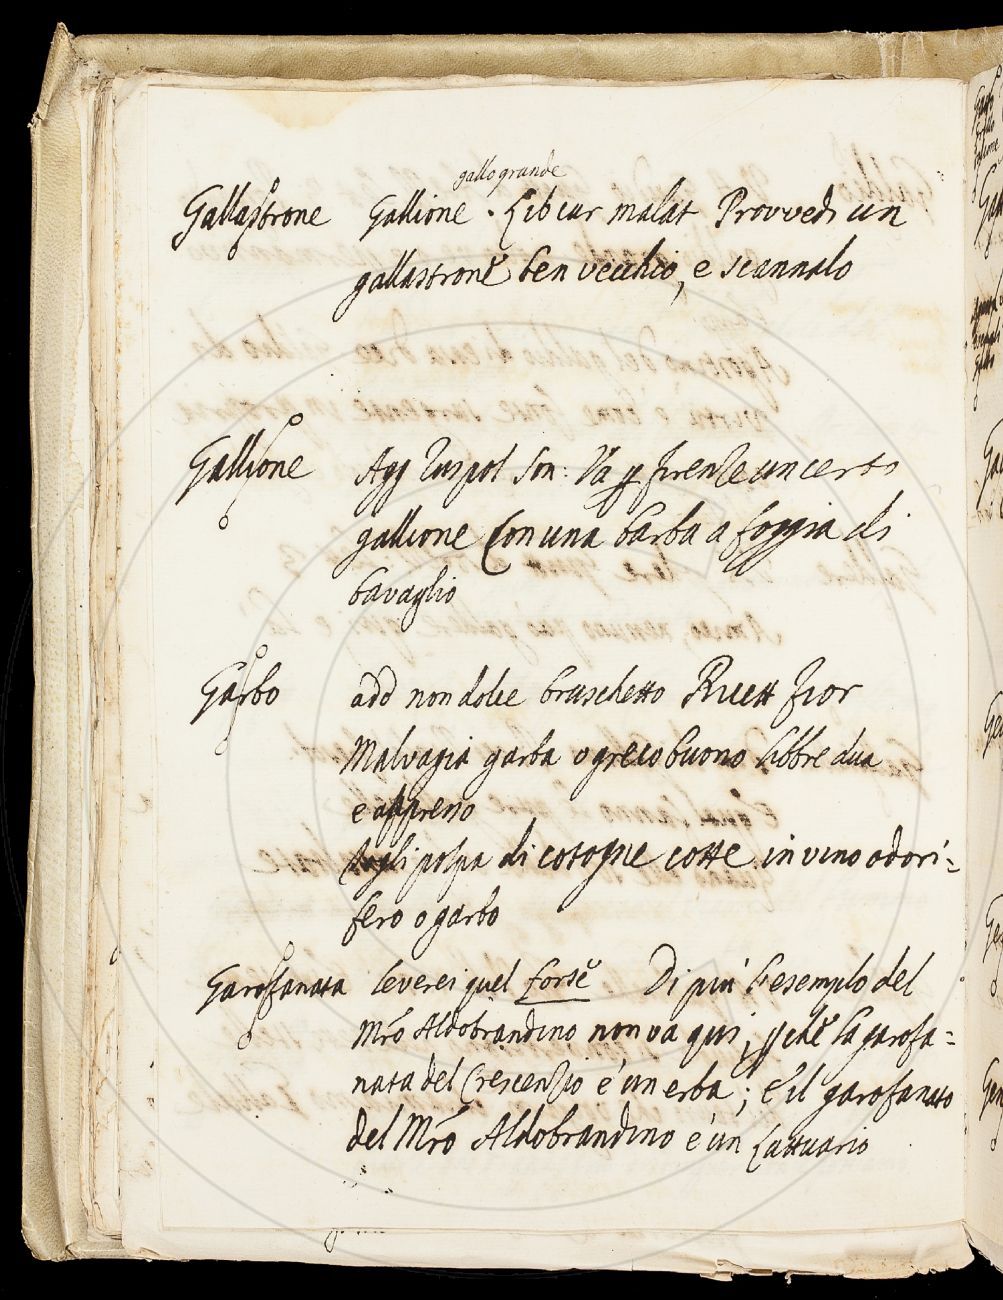 gallo grande
Gallastrone Gallione . Lib cur malat Provvedi un
gallastrone ben vecchio, e scannalo
Gallione Agg Ruspol Son: Va p firenze un certo
gallione Con una barba a foggia di
bavaglio
Garbo add non dolce bruschetto Ricett fior
Malvagia garba o greco buono libbre dua
e appresso
togli polpa di cotogne cotte in vino odori=
fero o garbo
Garofanata leverei quel forse Di più l'esempio del
Mro Aldobrandino non va qui, pche la garofa=
nata del Crescenzio è un erba; e il garofanato
del Mro Aldobrandino è un Lattuario